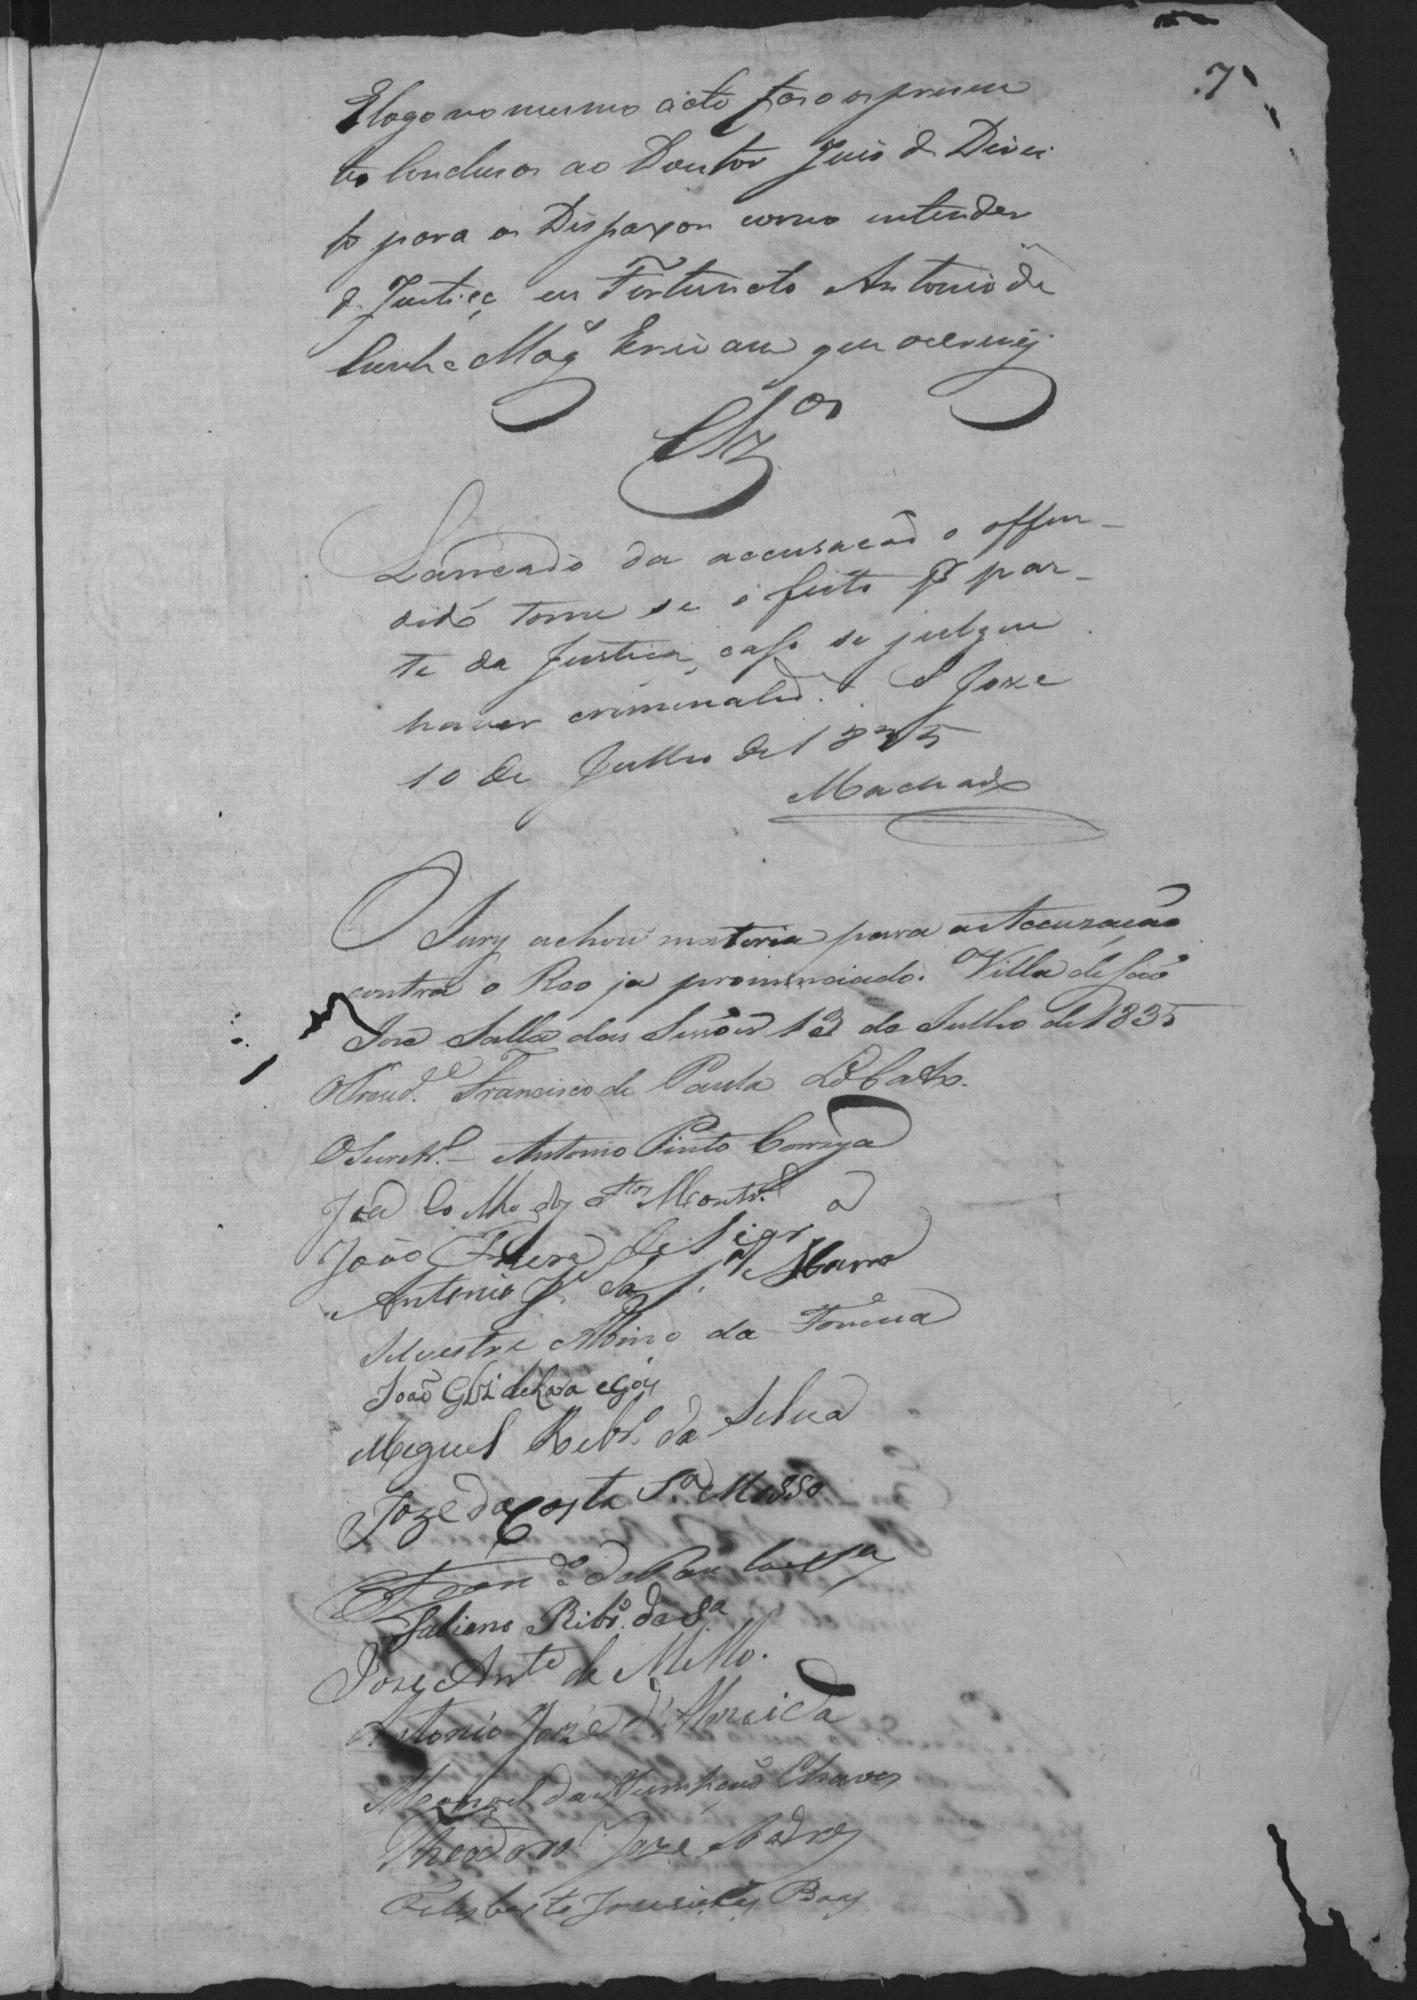 7
E logo no mesmo acto faso os prezen
tes Concluzos ao Doutor Juis de Direi
to para os Dispaxar como entender
de Justiça eu Fortunato Antonio da
Cunha Mag.es Escrivam que o escrevy
Clz.os
Lanceado da accusacaõ o offen-
dido torne se o feito p.r par-
te da Justica, caso se julgue
haver criminalid.e. S. Joze
10 de Julho de 1835
Machado
O Jury achou materia para a Accuzação
contra o Reo ja pronunciado. Villa de Saõ
Jozé Salla das Sessoẽs 13 de Julho de 1835
O Prezid.e Francisco de Paula Lobato.
O Secret.o Antonio Pinto Correya
Joaõ Coelho dos St.os Montr.o
João de
Antonio J.e da S.a
Silvestre Albino da Fonceca
Joaõ Glz' de Lara e Goy
Miguel Ribr.o da Silva
Joze da Costa S.a Masso
Fran.co de Paula
Fabiano Ribr.o da S.a
Joze Ant.o de Mello.
Antonio Joze d'Almeida
Manoel da Assumpçaõ Chaves
Theodoro Joze
Felisberto